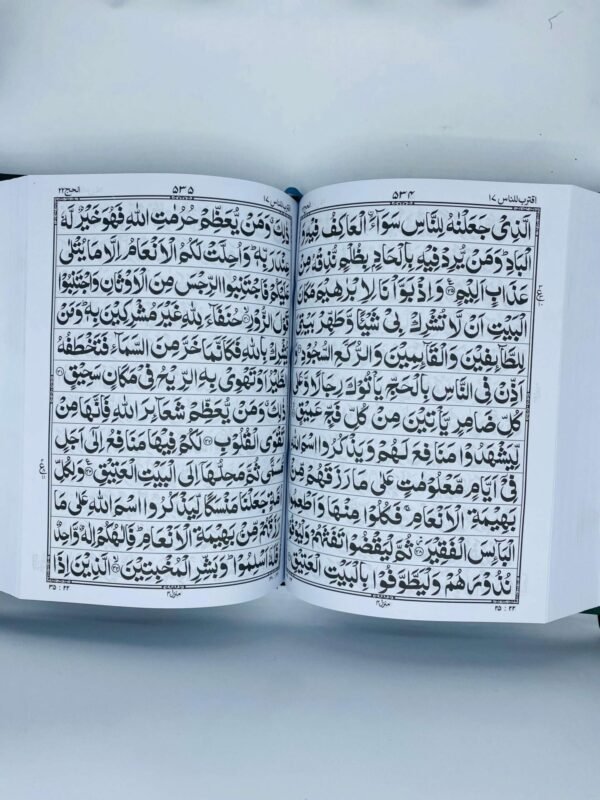 اقترب للناس ۱۷
۵۳۴
الَّذِیْ جَعَلْنٰهُ لِلنَّاسِ سَوَآءَ ۨالْعَاكِفُ فِیْهِ
الْبَادِ ؕ وَمَنْ یُّرِدْ فِیْهِ بِاِلْحَادٍۭ بِظُلْمٍ نُّذِقْهُ مِنْ
عَذَابٍ اَلِیْمٍ ﴿۲۵﴾ وَاِذْ بَوَّاْنَا لِاِبْرٰهِیْمَ مَكَانَ
الْبَیْتِ اَنْ لَّا تُشْرِكْ بِیْ شَیْـًٔا وَّطَهِّرْ بَیْتِیَ
لِلطَّآىِٕفِیْنَ وَالْقَآىِٕمِیْنَ وَالرُّكَّعِ السُّجُوْدِ ﴿۲۶﴾
اَذِّنْ فِی النَّاسِ بِالْحَجِّ یَاْتُوْكَ رِجَالًا وَّعَلٰی
كُلِّ ضَامِرٍ یَّاْتِیْنَ مِنْ كُلِّ فَجٍّ عَمِیْقٍ
لِّیَشْهَدُوْا مَنَافِعَ لَهُمْ وَیَذْكُرُوا اسْمَ اللهِ
فِیْۤ اَیَّامٍ مَّعْلُوْمٰتٍ عَلٰی مَا رَزَقَهُمْ مِّنْۢ
بَهِیْمَةِ الْاَنْعَامِ ۚ فَكُلُوْا مِنْهَا وَاَطْعِمُوا
الْبَآىِٕسَ الْفَقِیْرَ ﴿۲۸﴾ ثُمَّ لْیَقْضُوْا تَفَثَهُمْ وَلْیُوْفُوْا
نُذُوْرَهُمْ وَلْیَطَّوَّفُوْا بِالْبَیْتِ الْعَتِیْقِ
۲۵ : ۲۲
منزل ۴
۱۷ للناس
۵۳۵
الحج ۲۲
ذٰلِكَ ۗ وَمَنْ یُّعَظِّمْ حُرُمٰتِ اللهِ فَهُوَ خَیْرٌ لَّهٗ
عِنْدَ رَبِّهٖ ؕ وَاُحِلَّتْ لَكُمُ الْاَنْعَامُ اِلَّا مَا یُتْلٰی
عَلَیْكُمْ فَاجْتَنِبُوا الرِّجْسَ مِنَ الْاَوْثَانِ وَاجْتَنِبُوْا
قَوْلَ الزُّوْرِ ﴿۳۰﴾ حُنَفَآءَ لِلّٰهِ غَیْرَ مُشْرِكِیْنَ بِهٖ ؕ وَمَنْ
یُّشْرِكْ بِاللهِ فَكَاَنَّمَا خَرَّ مِنَ السَّمَآءِ فَتَخْطَفُهُ
الطَّیْرُ اَوْ تَهْوِیْ بِهِ الرِّیْحُ فِیْ مَكَانٍ سَحِیْقٍ ﴿۳۱﴾
ذٰلِكَ ۗ وَمَنْ یُّعَظِّمْ شَعَآىِٕرَ اللهِ فَاِنَّهَا مِنْ
تَقْوَی الْقُلُوْبِ ﴿۳۲﴾ لَكُمْ فِیْهَا مَنَافِعُ اِلٰۤی اَجَلٍ
مُّسَمًّی ثُمَّ مَحِلُّهَاۤ اِلَی الْبَیْتِ الْعَتِیْقِ ﴿۳۳﴾ وَلِكُلِّ
اُمَّةٍ جَعَلْنَا مَنْسَكًا لِّیَذْكُرُوا اسْمَ اللهِ عَلٰی مَا
رَزَقَهُمْ مِّنْۢ بَهِیْمَةِ الْاَنْعَامِ ؕ فَاِلٰهُكُمْ اِلٰهٌ وَّاحِدٌ
فَلَهٗۤ اَسْلِمُوْا ؕ وَبَشِّرِ الْمُخْبِتِیْنَ ﴿۳۴﴾ الَّذِیْنَ اِذَا
منزل ۴
۳۵ : ۲۲